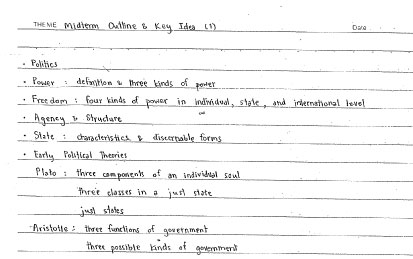 THEME Midterm Outline & Key Idea (1) Date
• Politics
• Power : definition & three kinds of power
• Freedom : four kinds of power in individual, state, and international level
• Agency & Structure
• State : characteristics & discernable forms
• Early Political Theories
Plato : three components of an individual soul
three classes in a just state
just states
Aristotle : three functions of government
three possible kinds of government